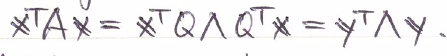 xᵀAx = xᵀQΛQᵀx = yᵀΛy.